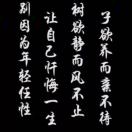 子欲养而亲不待
树欲静而风不止
让自己忏悔一生
别因为年轻任性